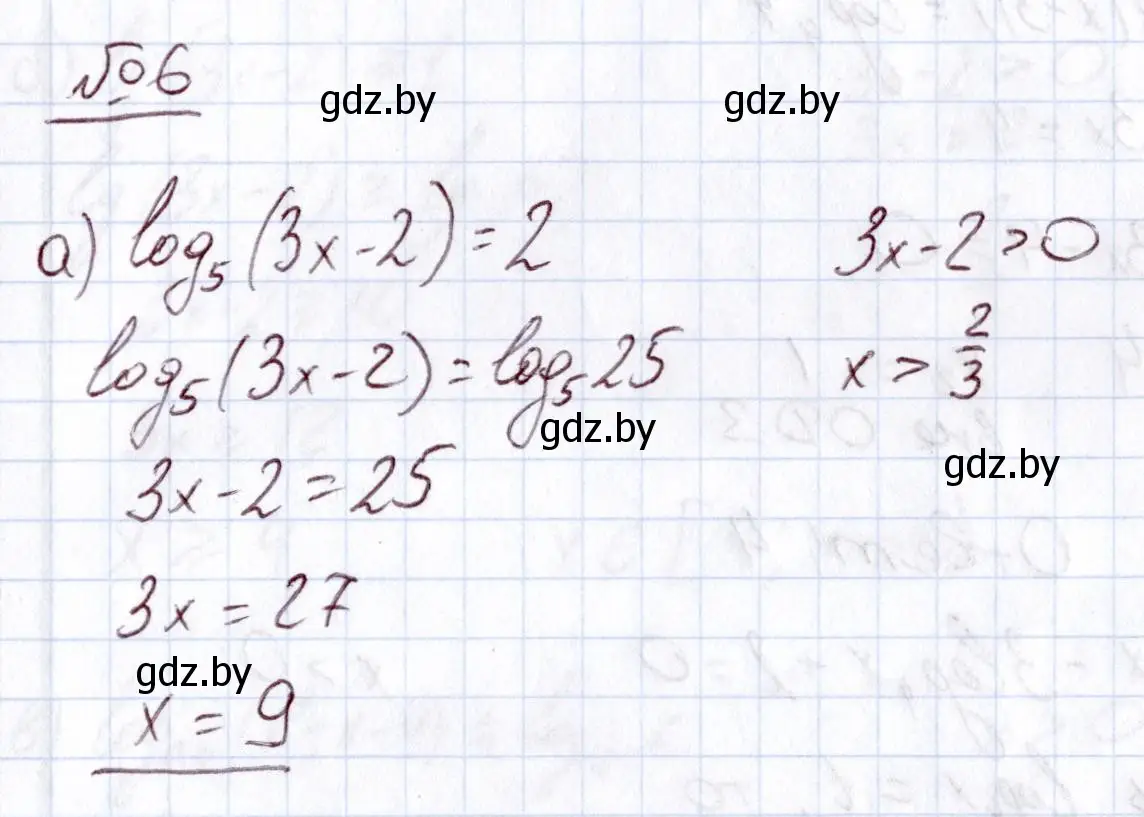 №6
а) log₅(3x-2)=2
3x-2>0
log₅(3x-2)=log₅25
x > 2/3
3x-2=25
3x=27
x=9
gdz.by
gdz.by
gdz.by
gdz.by
gdz.by